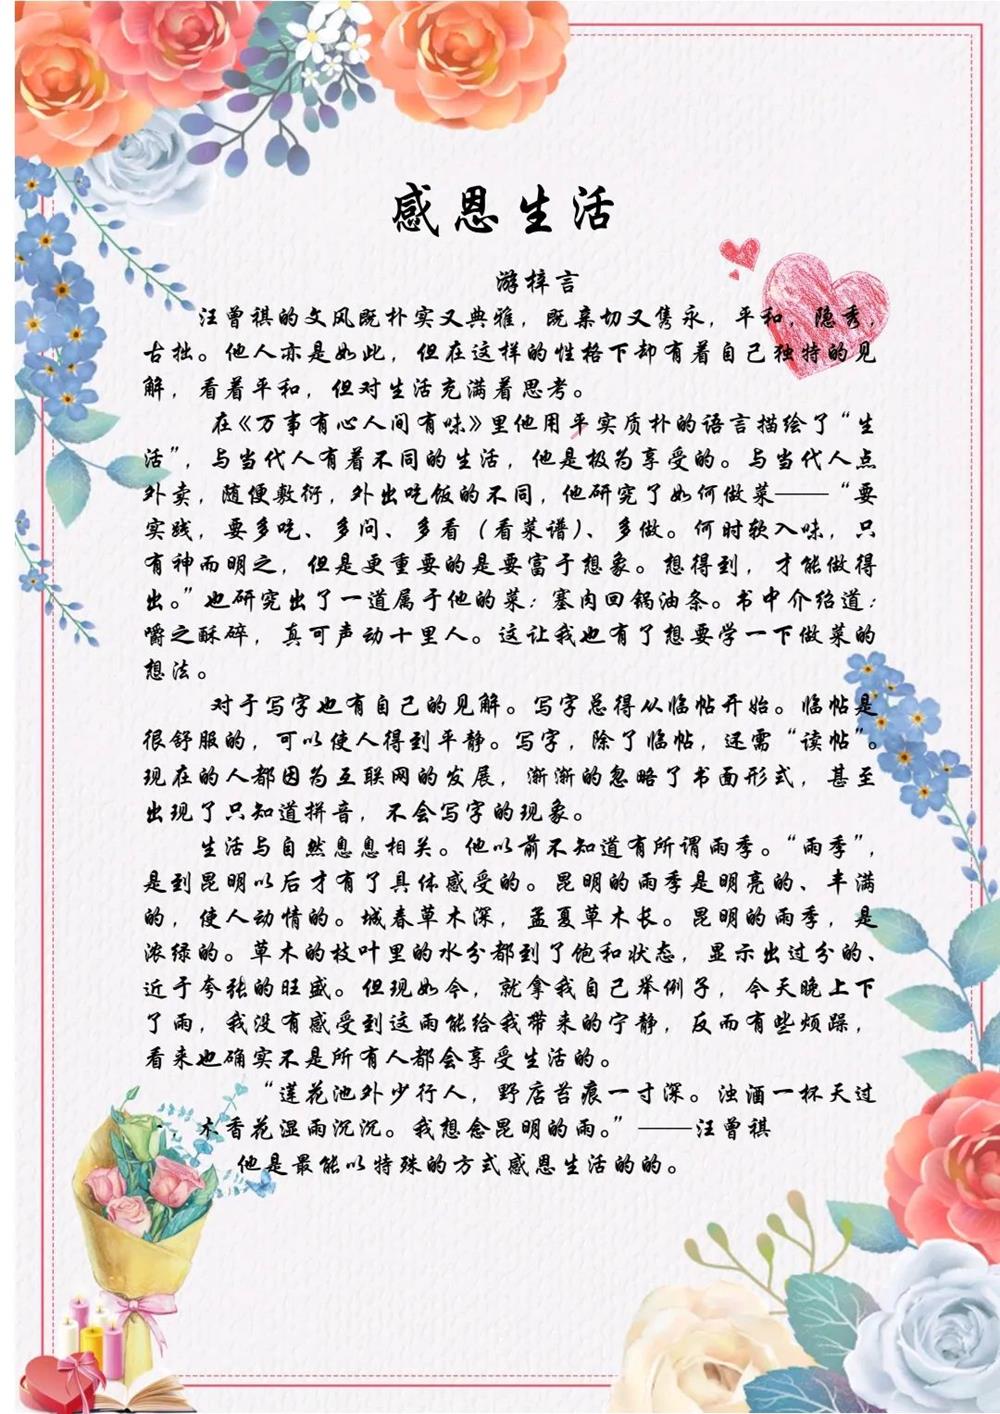 感恩生活
游梓言
汪曾祺的文风既朴实又典雅，既亲切又隽永，平和，隐秀，
古拙。他人亦是如此，但在这样的性格下却有着自己独特的见
解，看着平和，但对生活充满着思考。
在《万事有心人间有味》里他用平实质朴的语言描绘了“生
活”，与当代人有着不同的生活，他是极为享受的。与当代人点
外卖，随便敷衍，外出吃饭的不同，他研究了如何做菜——“要
实践，要多吃、多问、多看（看菜谱）、多做。何时软入味，只
有神而明之，但是更重要的是要富于想象。想得到，才能做得
出。”也研究出了一道属于他的菜：塞肉回锅油条。书中介绍道：
嚼之酥碎，真可声动十里人。这让我也有了想要学一下做菜的
想法。
对于写字也有自己的见解。写字总得从临帖开始。临帖是
很舒服的，可以使人得到平静。写字，除了临帖，还需“读帖”。
现在的人都因为互联网的发展，渐渐的忽略了书面形式，甚至
出现了只知道拼音，不会写字的现象。
生活与自然息息相关。他以前不知道有所谓雨季。“雨季”，
是到昆明以后才有了具体感受的。昆明的雨季是明亮的、丰满
的，使人动情的。城春草木深，孟夏草木长。昆明的雨季，是
浓绿的。草木的枝叶里的水分都到了饱和状态，显示出过分的、
近于夸张的旺盛。但现如今，就拿我自己举例子，今天晚上下
了雨，我没有感受到这雨能给我带来的宁静，反而有些烦躁，
看来也确实不是所有人都会享受生活的。
“莲花池外少行人，野店苔痕一寸深。浊酒一杯天过
木香花湿雨沉沉。我想念昆明的雨。”——汪曾祺
他是最能以特殊的方式感恩生活的的。